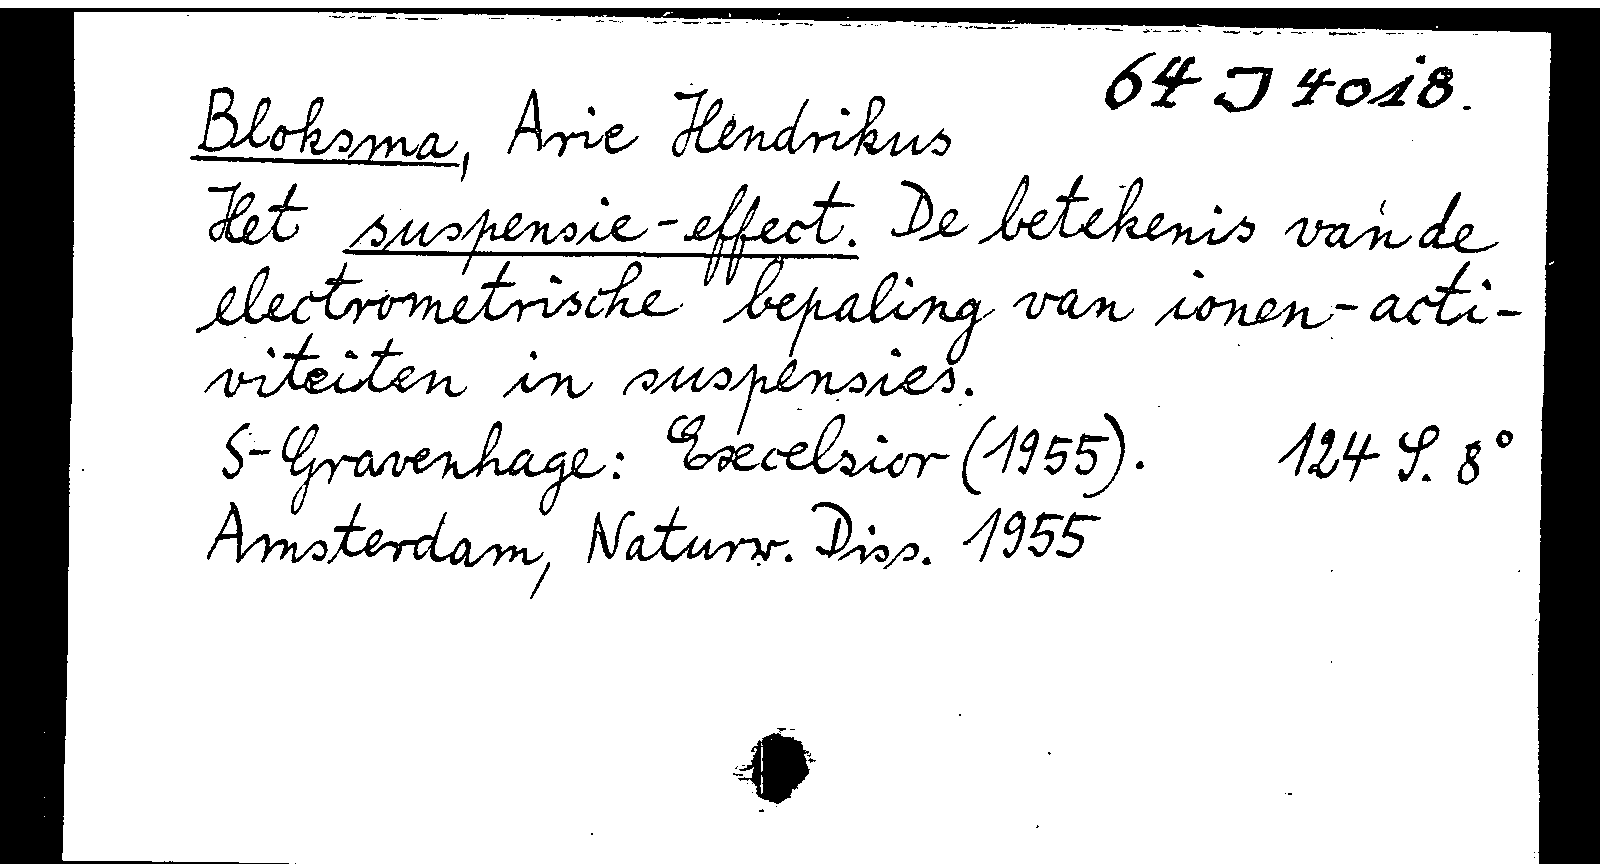 64 J 4018.
Bloksma, Arie Hendrikus
Het suspensie-effect. De betekenis van de
electrometrische bepaling van ionen-acti-
viteiten in suspensies.
S-Gravenhage: Excelsior (1955). 124 S. 8°
Amsterdam, Naturw. Diss. 1955